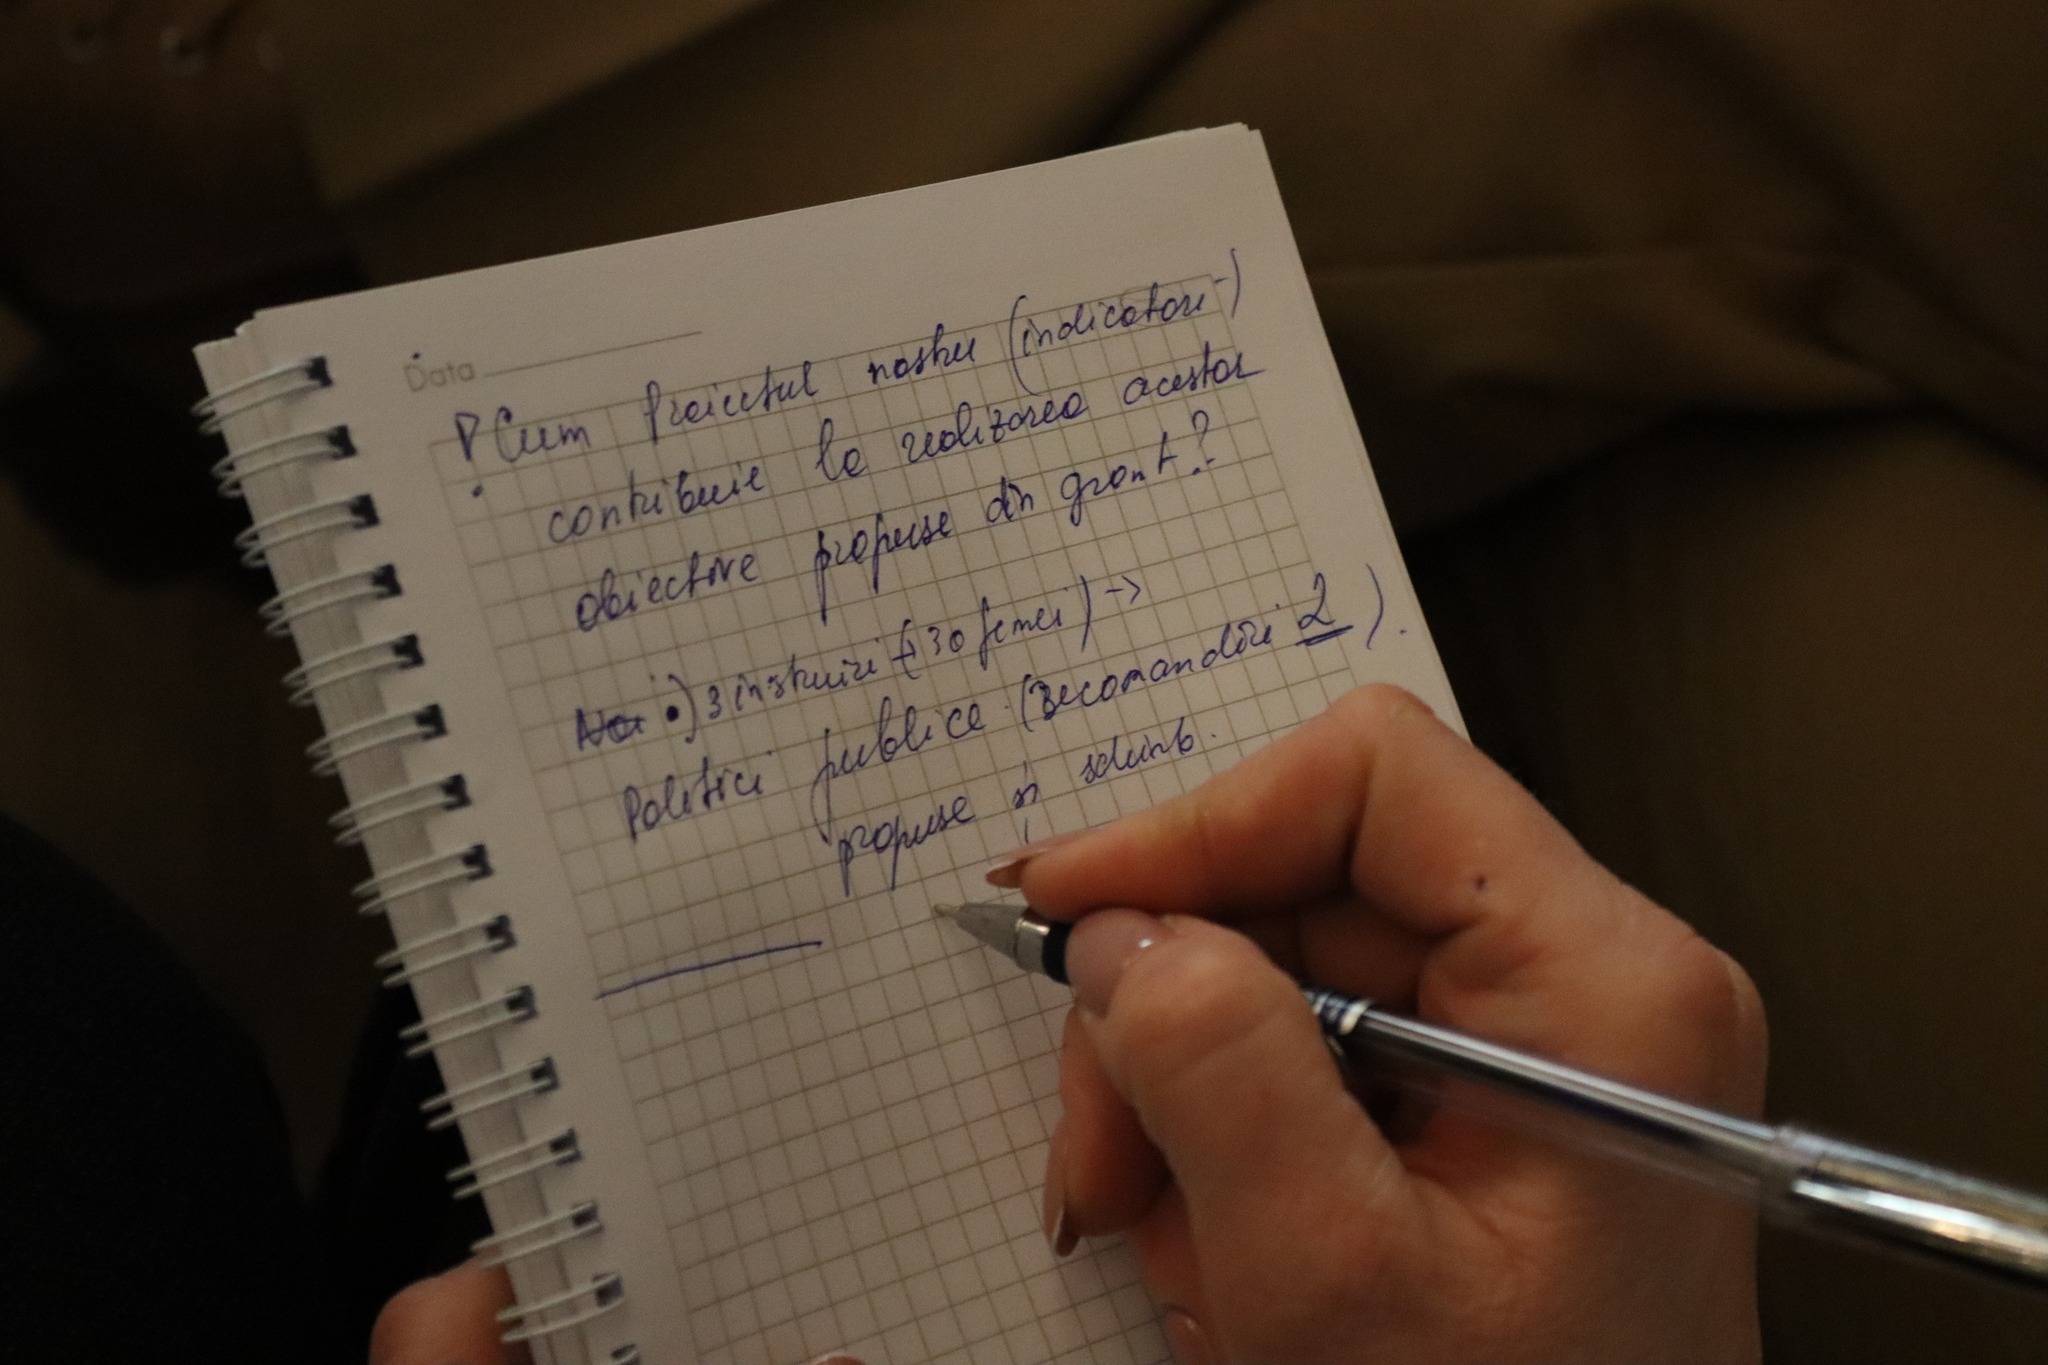 Data
! Cum Proiectul nostru (indicatori-)
contribuie la realizarea acestor
obiective propuse din grant?
•) 3 instruiri (30 femei) ->
Politici publice (recomandări 2).
propuse și schimb.